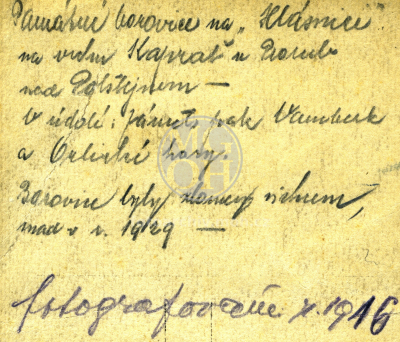 Památné borovice na „Hlásnici"
na vrchu Kaprač u Prorub
nad Potštejnem —
V údolí: zámek, pak Vamberk
a Orlické hory.
Borovice byly zlomeny vichrem,
snad v r. 1929 —
fotografováno r. 1916